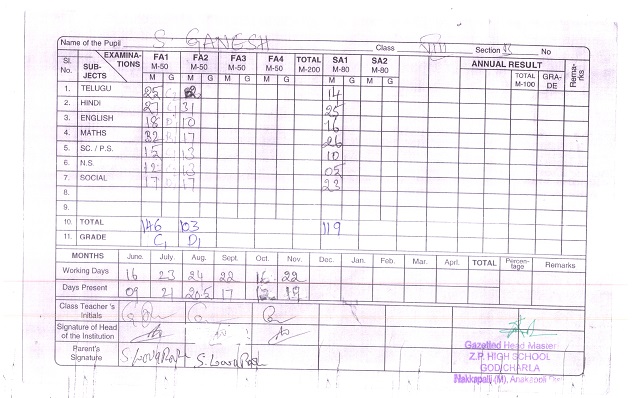 Name of the Pupil S. GANESH Class VIII Section No
Sl. No. SUBJECTS EXAMINATIONS FA1 M-50 FA2 M-50 FA3 M-50 FA4 M-50 TOTAL M-200 SA1 M-80 SA2 M-80 ANNUAL RESULT TOTAL M-100 GRADE Remarks
M G M G M G M G M G M G
1. TELUGU 25 14
2. HINDI 27 31 25
3. ENGLISH 18 10 16
4. MATHS 32 17 26
5. SC. / P.S. 15 13 10
6. N.S. 12 13 05
7. SOCIAL 17 17 23
8.
9.
10. TOTAL 146 103 119
11. GRADE C1 D1
MONTHS June. July. Aug. Sept. Oct. Nov. Dec. Jan. Feb. Mar. Aprl. TOTAL Percentage Remarks
Working Days 16 23 24 22 16 22
Days Present 09 21 20.5 17 12 19
Class Teacher's Initials
Signature of Head of the Institution
Parent's Signature
Gazetted Head Master
Z.P. HIGH SCHOOL
GODICHARLA
Nakkapalli (M), Anakapalli